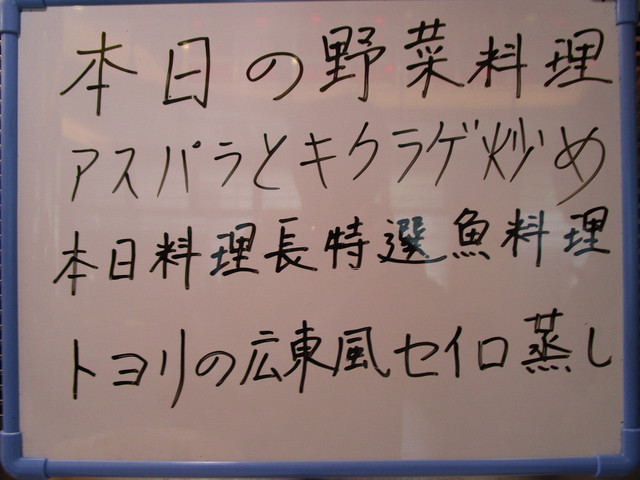 本日の野菜料理
アスパラとキクラゲ炒め
本日料理長特選魚料理
トヨリの広東風セイロ蒸し